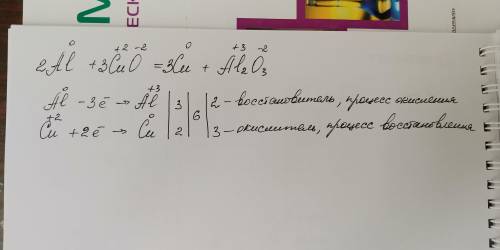 М
ЧЕСК
0 +2 -2 0 +3 -2
2Al + 3CuO = 3Cu + Al₂O₃
0 +3
Al - 3e̅ → Al | 3 | 6 | 2 - восстановитель, процесс окисления
+2 0
Cu + 2e̅ → Cu | 2 | | 3 - окислитель, процесс восстановления